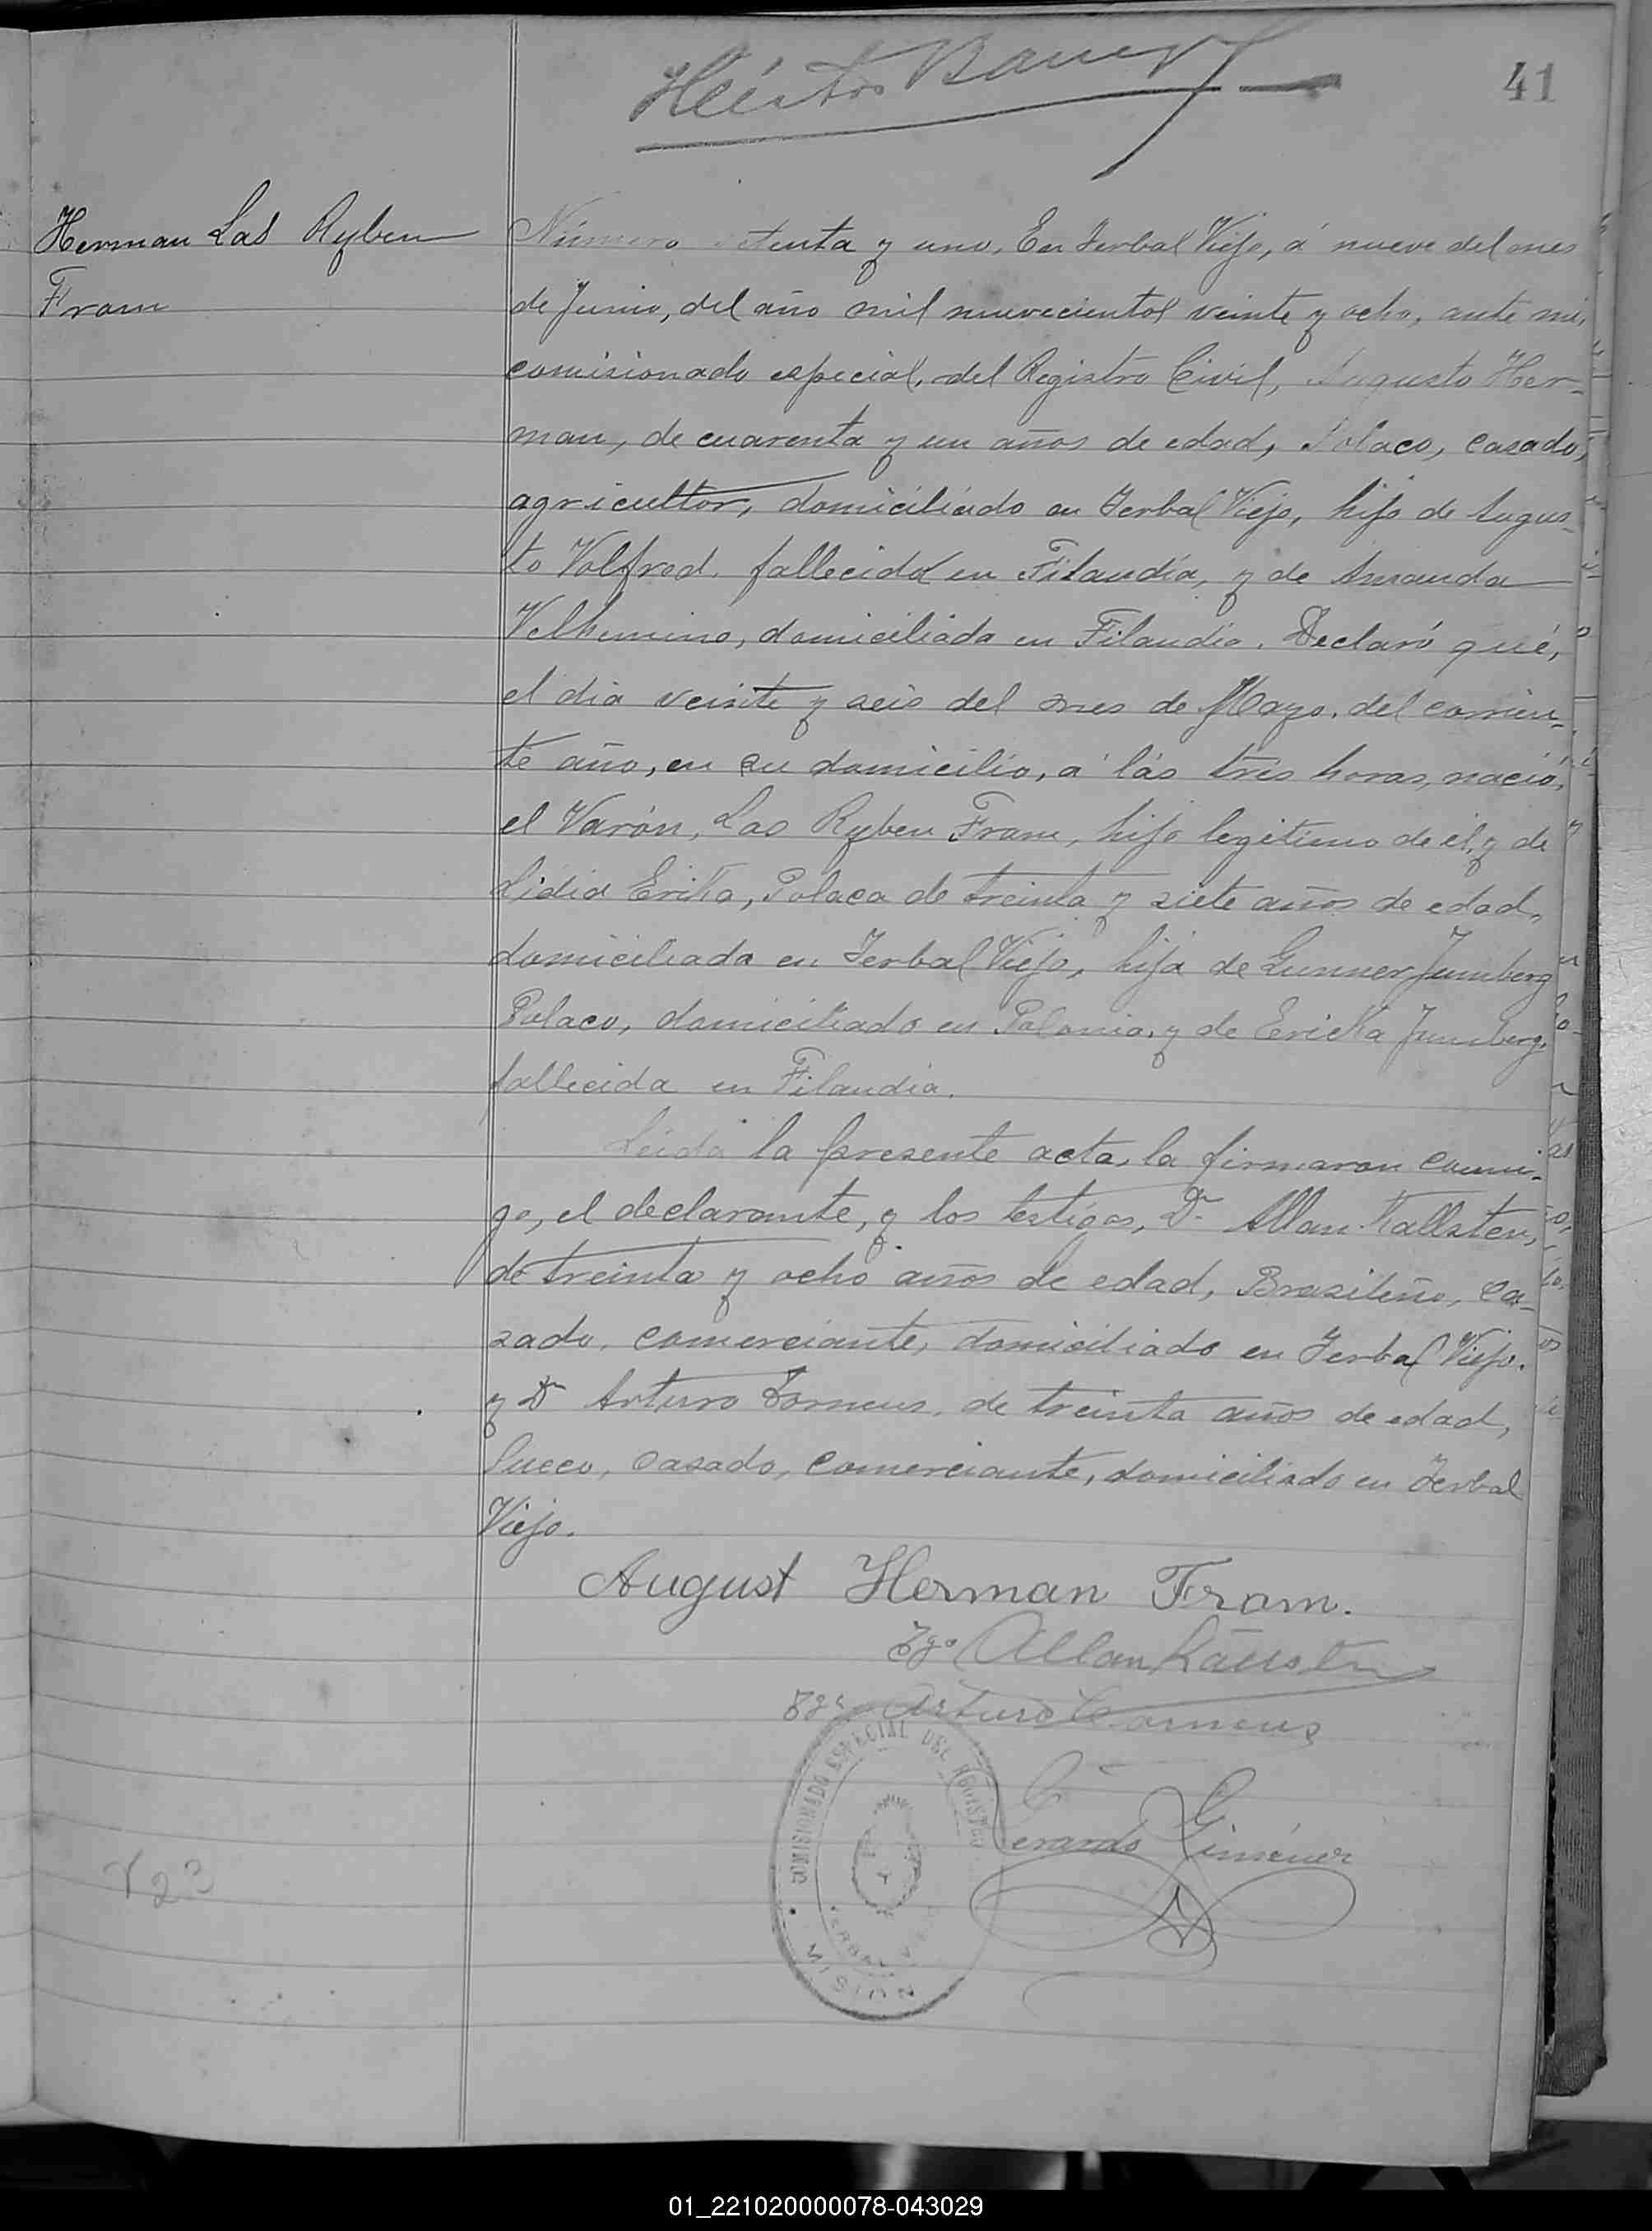 41
Herman Las Ryben
Fram
Número setenta y uno, En Yerbal Viejo, á nueve del mes
de Junio, del año mil nuevecientos veinte y ocho, ante mi,
comisionado especial, del Registro Civil, Augusto Her-
man, de cuarenta y un años de edad, Polaco, casado,
agricultor, domiciliado en Yerbal Viejo, hijo de Augus-
to Volfred, fallecido en Filandia, y de Amanda
domiciliada en Filandia. Declaró qué,
el dia veinte y seis del mes de Mayo, del corrien-
te año, en su domicilio, a las tres horas, nació,
el Varón, Las Ryben Fram, hijo legitimo de él, y de
Lidia Erika, Polaca de treinta y siete años de edad,
domiciliada en Yerbal Viejo, hija de Gunner Jumberg
Polaco, domiciliado en Polonia, y de Ericka Jumberg,
fallecida en Filandia.
Leida la presente acta, la firmaron conmi-
go, el declarante, y los testigos, Dn Allan Kallsten,
de treinta y ocho años de edad, Brasileño, ca-
sado, comerciante, domiciliado en Yerbal Viejo.
y Dn Arturo Torneus, de treinta años de edad,
Sueco, casado, comerciante, domiciliado en Yerbal
Viejo.
August Herman Fram.
Tgo Allan Källsten
Tgo Arturo Torneus
COMISIONADO ESPECIAL DEL REGISTRO
YERBAL VIEJO
MISION
Gerardo Giménez
01_221020000078-043029